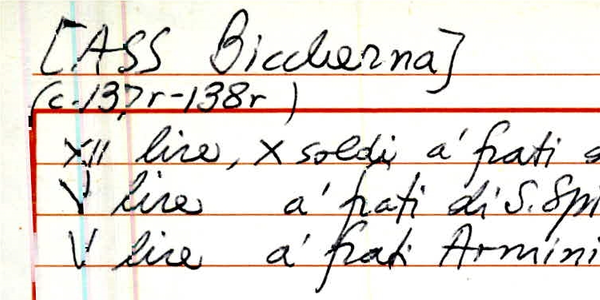 [ASS Biccherna]
(c.137r-138r)
XII lire, X soldi a' frati
V lire a' frati di S. Spi
V lire a' frati Armini